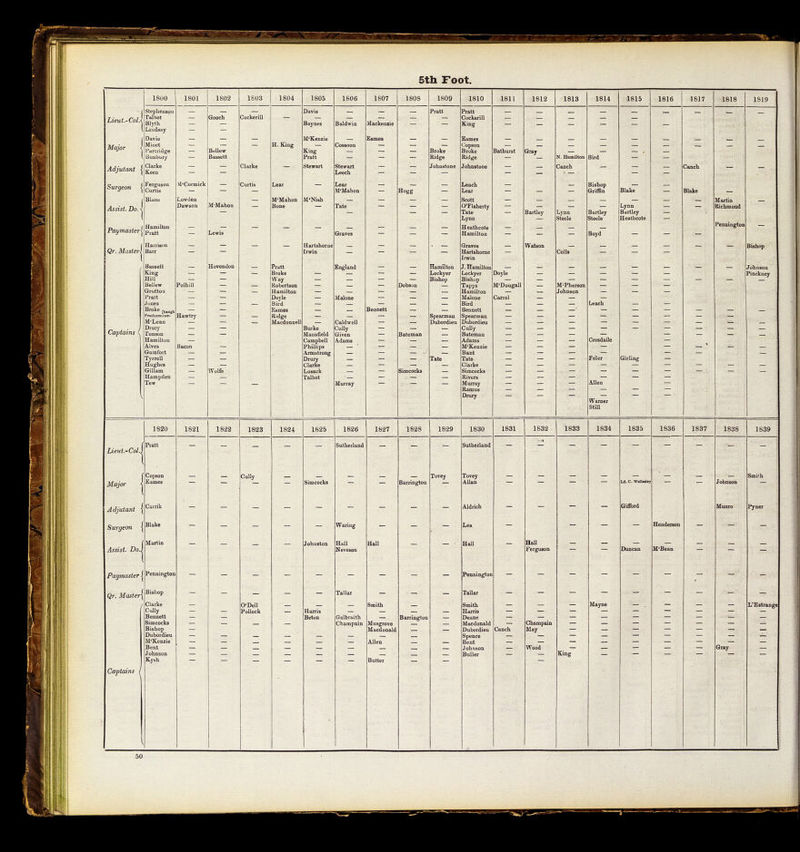 5th Foot.
1800 1801 1802 1803 1804 1805 1806 1807 1808 1809 1810 1811 1812 1813 1814 1815 1816 1817 1818 1819
Lieut.-Col.
Stephenson — — — Davis — — — Pratt Pratt — — — — — — — — —
Talbot — Gooch Cockerill — — — — — — Cockerill — — — — — — — —
Blyth — — Baynes Baldwin Mackenzie — — King — — — — —
Lindsey — —
Major
Davie — — — M'Kenzie — Eames — — Eames — — — — — — — — —
Micet — — — H. King — Cosson — — — Copson — — — — — — — — —
Partridge — Bellew King — — — Broke Broke Bathurst Gray — — — —
Bunbury — Bassett Pratt — — — Ridge Ridge — — N. Hamilton Bird — —
Adjutant
Clarke — — Clarke — Stewart Stewart — — Johnstone Johnstone — — Canch — — — Canch — —
Keen — — Leech — — — — — — — — —
Surgeon
Ferguson M'Cormick — Curtis Lear — Lear — — — Leach — — — Bishop — — — —
Curtis — — M'Mahon — Hogg — Lear — — — Griffin Blake — Blake —
Assist. Do.
Blane Lowden — M'Mahon M'Nish — — — — Scott — — — — — — Martin —
Dawson M'Mahon — Bone — Tate — — — O'Flaherty — — — — Lynn — — Richmond
Tate — Bartley Lynn Bartley Bartley —
Lynn Steele Steele Heathcote —
Paymaster
Hamilton — — — — — — — — — Heathcote — — — — — — — Pennington —
Pratt Lewis Graves — — — Hamilton — — — Boyd — — —
Qr. Master
Harrison — — — — Hartshorne — — — — Graves — Watson — — — — — — Bishop
Barr — — Irwin — — — — Hartshorne — — Colls — — —
Irwin
Captains
Bassett — Hovendon — Pratt England — — Hamilton J. Hamilton — — — — — — — — Johnson
King — — — Broke — — — Lockyer Lockyer Doyle — — — — — — — Pinckney
Hill — — — Way — — — Bishop Bishop — — — — — —
Bellew Polhill — — Robertson — — — Dobson — Tapps M'Dougall — M'Pherson — — —
Grutton — — — Hamilton — — — — Hamilton — — Johnson — — —
Pratt — — Doyle — Malone — — — Malone Carrol — — — —
Jones — — Bird — — — — Bird — — — Leach — —
Broke — — Eames — — Bennett — — Bennett — — — — —
Hawtry — — Ridge — — — — Spearman Spearman — — — — —
M'Lean — — Macdonnell — Caldwell — — Dubordieu Dubordieu — — — — —
Drury — — Burke Cully — — — Cully — — — — —
Tonson — — Mansfield Given — Bateman — Bateman — — — — —
Hamilton — — Campbell Adams — — — Adams — — — Croadaile —
Alves Bacon — Phillips — — — — M'Kenzie — — — — —
Gumfort — — Armstrong — — — — Bant — — —
Tyrrell — — Drury — — — Tate Tate — — — Feler Girling —
Hughes — — Clarke — — — Clarke — — — — —
Gillam — Wolfe Lusack — — Simcocks — Simcocks — — — — —
Hampden — — Talbot — — — — Rivers — — — — —
Tew — — Murray — — — Murray — — — Allen —
Ramus — — — — —
Drury — — — — —
Warner
Still
1820 1821 1822 1823 1824 1825 1826 1827 1828 1829 1830 1831 1832 1833 1834 1835 1836 1837 1838 1839
Lieut.-Col.
Pratt — — — — — Sutherland — — — Sutherland — — — — — — — — —
Major
Copson — — Cully — — — — — Tovey Tovey — — — — — — — — Smith
Eames — — — — Simcocks — — Barrington — Allan — — — — Ld. C. Wellesley — — Johnson —
Adjutant
Currik — — — — — — — — — Aldrich — — — — Gifford Munro Pyner
Surgeon
Blake — — — — — Waring — — — Lea — — — — Henderson — — —
Assist. Do.
Martin — — — — Johnston Hall Hall — — Hall — Hall — — — — — — —
Neveson Ferguson — — Duncan M'Bean — — —
Paymaster
Pennington — — — — — — — — — Pennington — — — — — — — — —
Qr. Master
Bishop — — — — — Tallar — — — Tallar — — — — — — — — —
Captains
Clarke — — O'Dell — — — Smith — — Smith — — — Mayne — — — — L'Estrange
Cully — — Pollock — Harris — — — — Harris — — — — — — — — —
Bennett — — Beten Galbraith — Barrington — Deane — — — — — — — — —
Simcocks — — Champain Musgrave — — Macdonald — Champain — — — — — — —
Bishop — — — — — — Macdonald — — Dubordieu Canch May — — — — — — —
Dubordieu — — — — — — — — — Spence — — — — — — — — —
M'Kenzie — — — — — — Allen — — Bent — — — — — — — — —
Bent — — — — — — — — — Johnson — Wood — — — — — Gray —
Johnson — — — — — — — — — Butler — — King — — — — — —
Kysh — — — — — — Butter — —
50